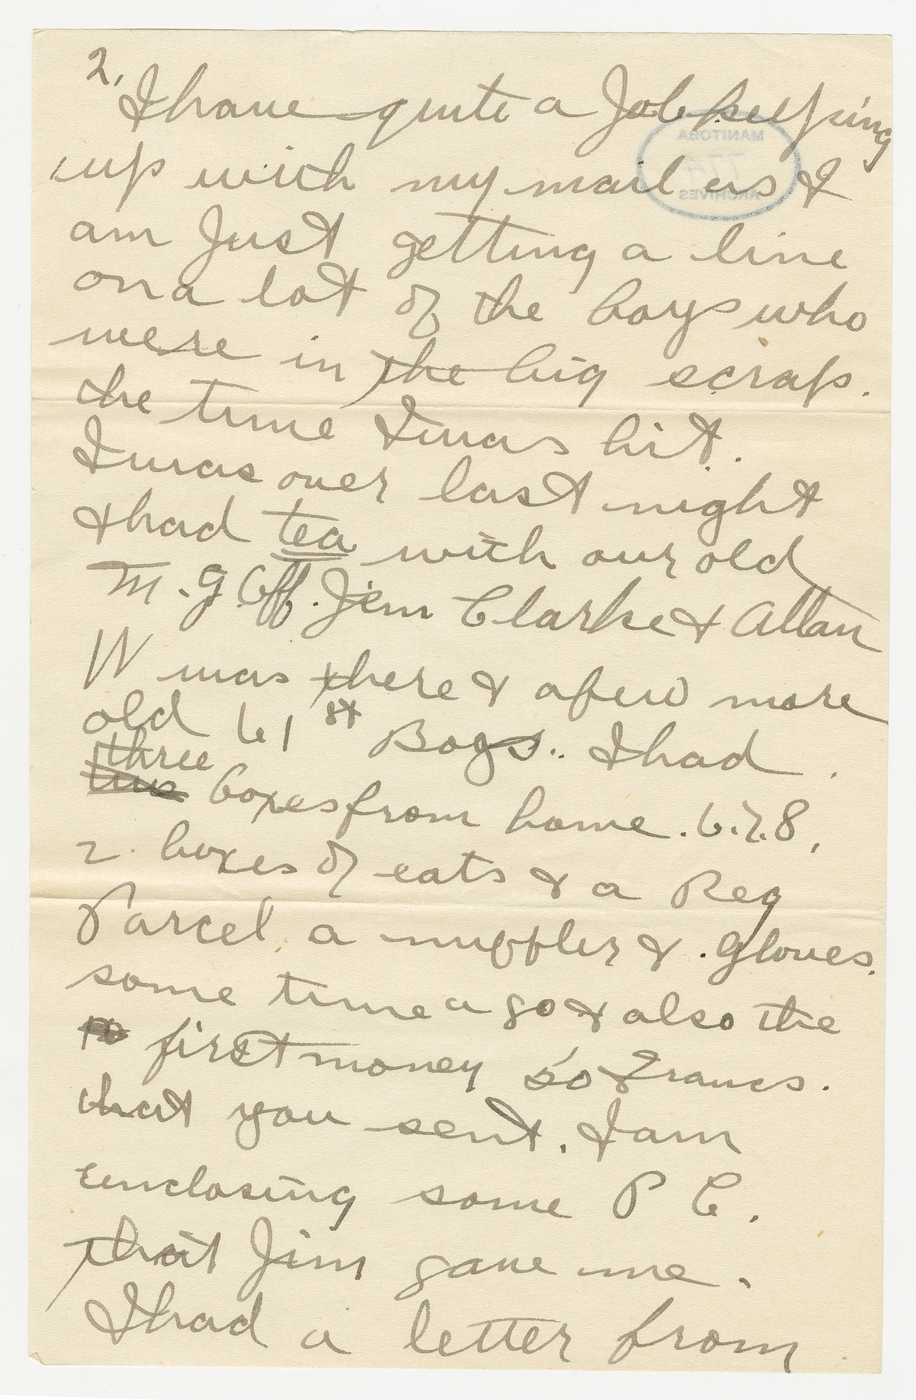 2.
I have quite a Job keeping
up with my mail as I
am Just getting a line
on a lot of the boys who
were in the big scrap.
the time I was hit.
I was over last night
& had tea with our old
M.G. Off. Jim Clarke & Allan
W was there & a few more
old 61st Boys.. I had
three
boxes from home. 6.7.8,
2 boxes of eats & a Reg
Parcel a muffler & gloves.
some time ago & also the
first money 50 Francs.
that you sent. I am
enclosing some P C.
that Jim gave me.
I had a letter from
MANITOBA
ARCHIVES